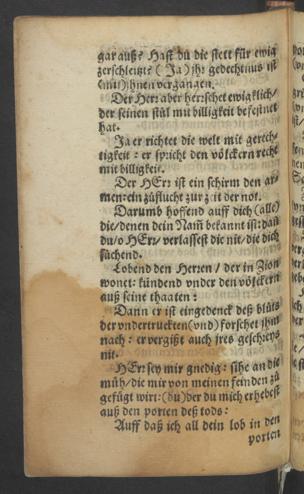 gar auß? Hast du die stett für ewig
zerschleitzt? (Ja) jhr gedechtnus ist
(mit) jhnen vergangen.
Der Herr aber herrschet ewigklich/
der seinen stůl mit billigkeit befestnet
hat.
Ja er richtet die welt mit gerech-
tigkeit : er spricht den völckern recht
mit billigkeit.
Der HErr ist ein schirm den ar-
men: ein zůflucht zur zeit der not.
Darumb hoffend auff dich (alle)
die/ denen dein Nam̄ bekannt ist: dañ
du/ o HErr/ verlassest die nit/ die dich
sůchend.
Lobend den Herren / der in Zion
wonet: kündend vnder den völckern
auß seine thaaten :
Dann er ist eingedenck deß blůts
der vndertruckten (vnd) forschet jhm
nach : er vergißt auch jres geschreys
nit.
HErr sey mir gnedig: sihe an die
müh/ die mir von meinen feinden zů
gefügt wirt: (du) der du mich erhebest
auß den porten deß tods :
Auff daß ich all dein lob in den
porten